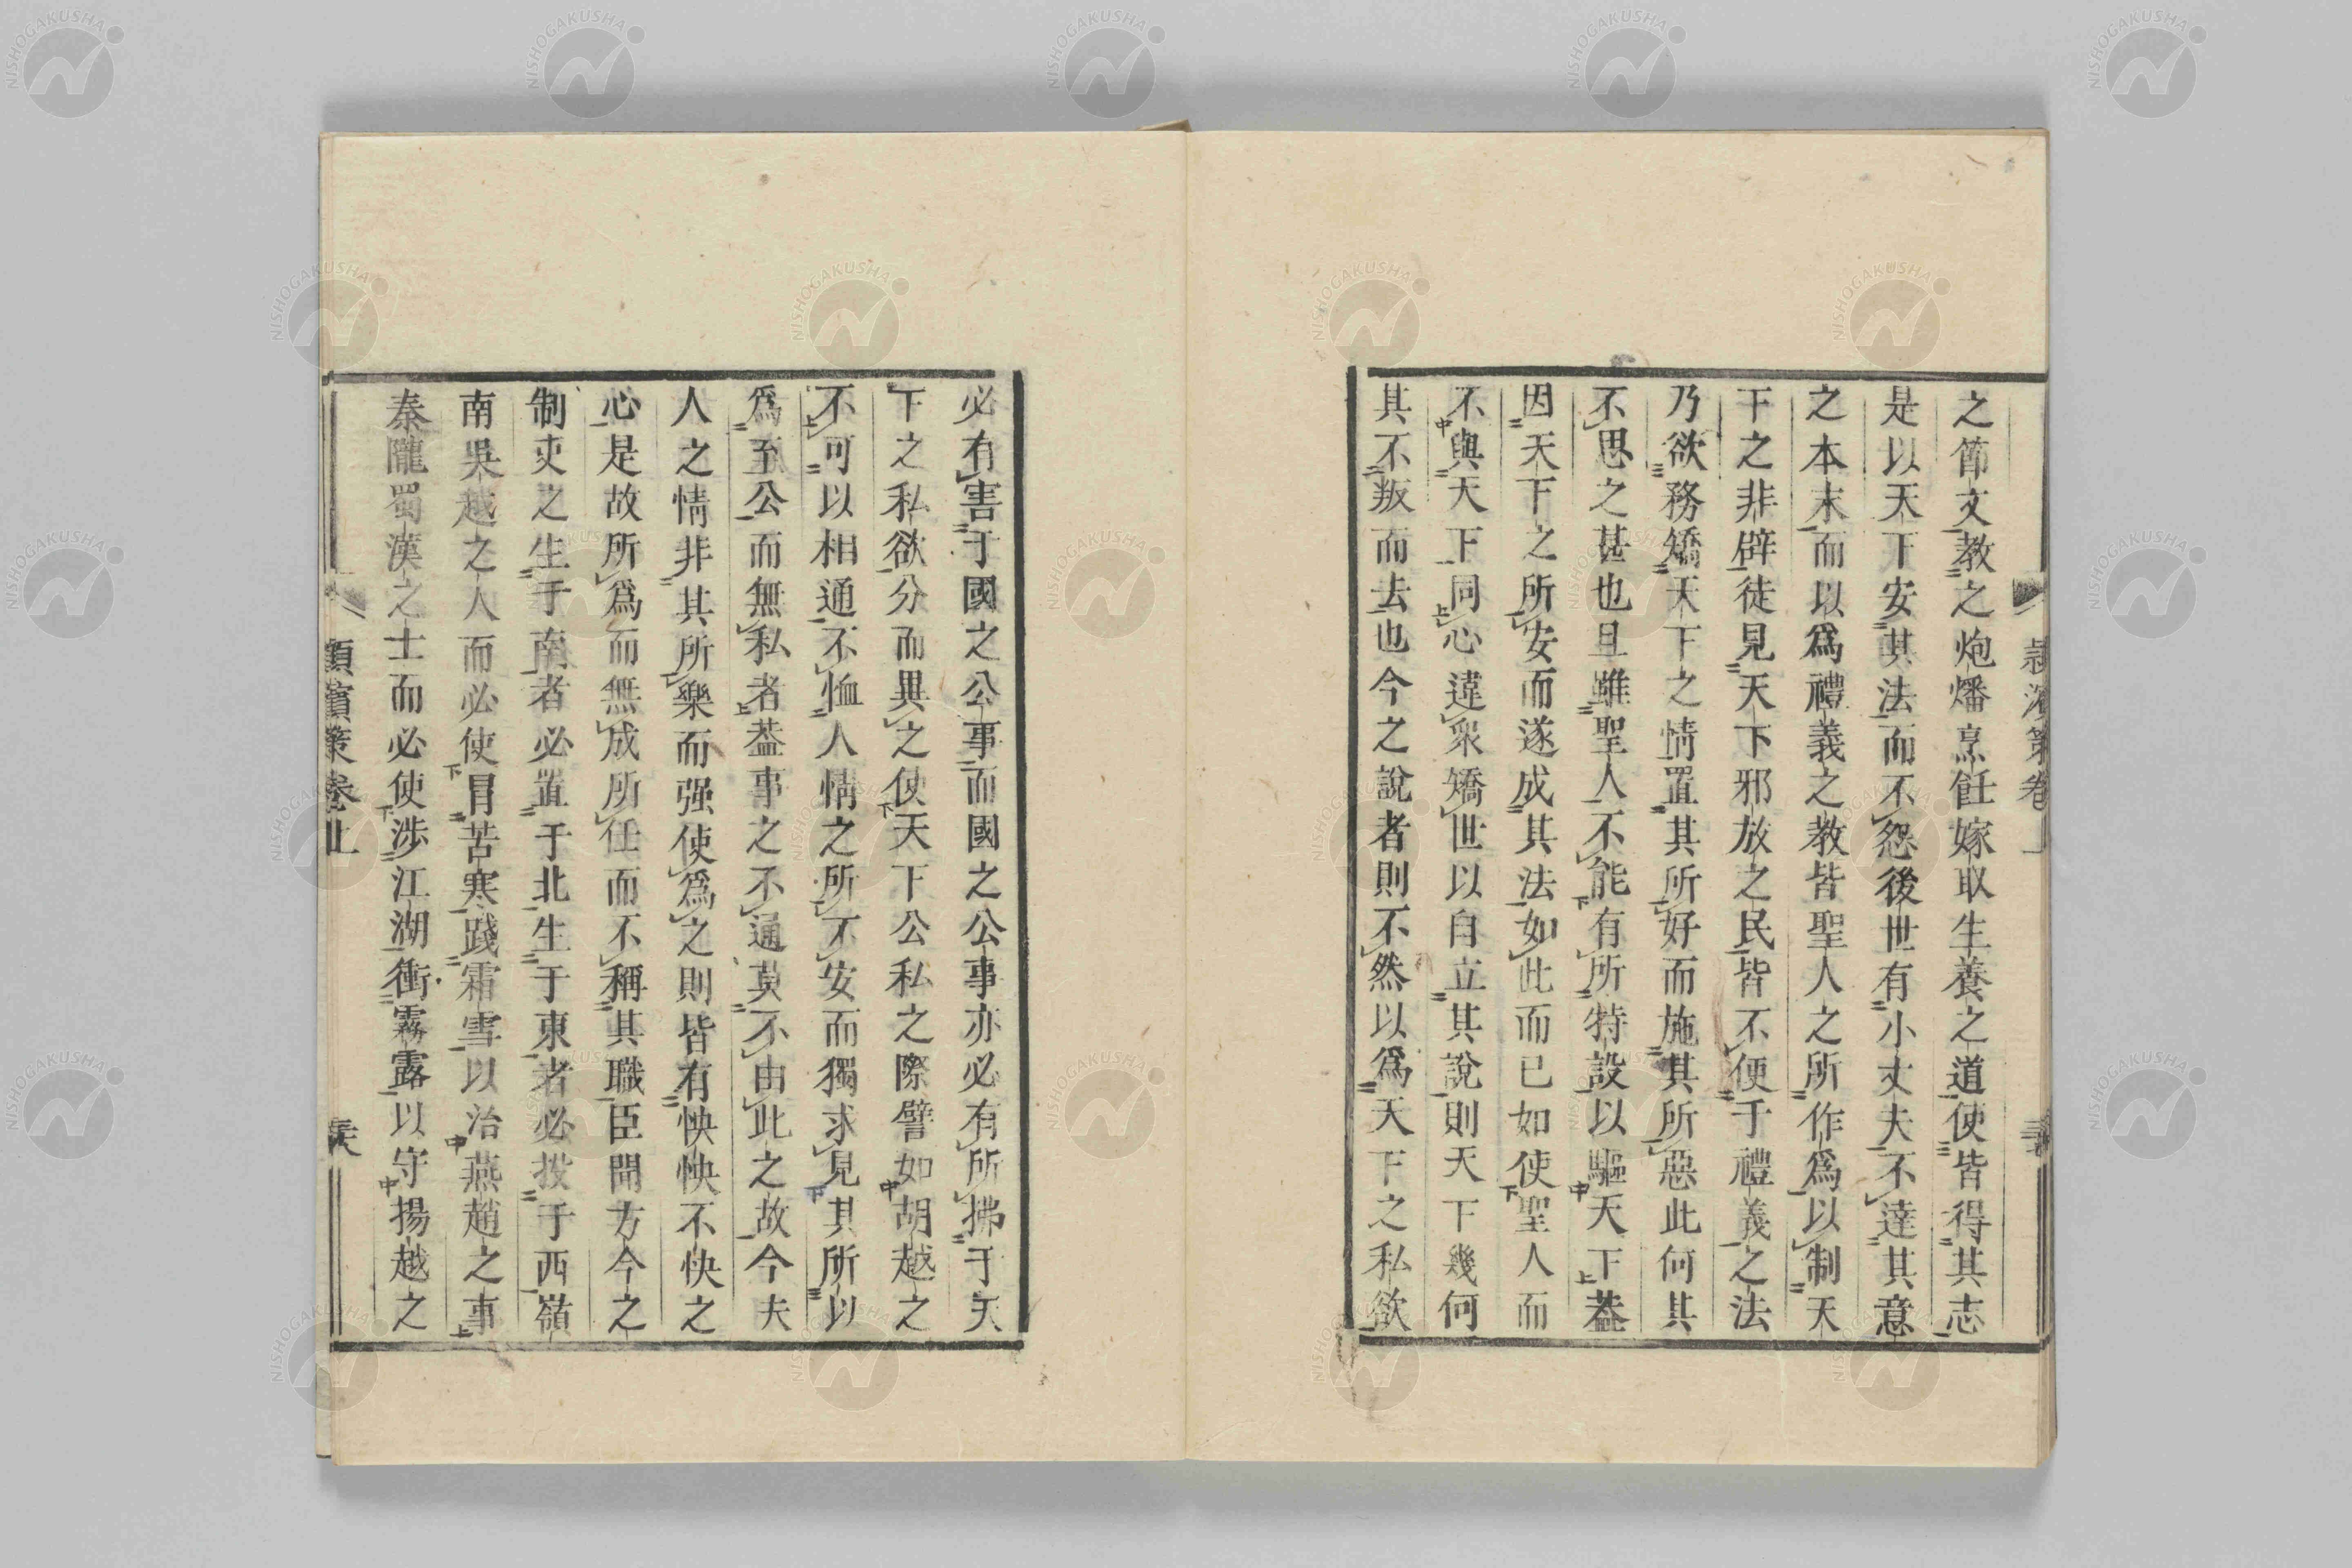 之節文教之炮燔烹飪嫁取生養之道使皆得其志
是以天下安其法而不怨後世有小丈夫不達其意
之本末而以爲禮義之教皆聖人之所作爲以制天
下之非辟徒見天下邪放之民皆不便于禮義之法
乃欲務矯天下之情置其所好而施其所惡此何其
不思之甚也且雖聖人不能有所特設以驅天下葢
因天下之所安而遂成其法如此而已如使聖人而
不與天下同心違衆矯世以自立其說則天下幾何
其不叛而去也今之說者則不然以爲天下之私欲
必有害于國之公事而國之公事亦必有所拂于天
下之私欲分而異之使天下公私之際譬如胡越之
不可以相通不恤人情之所不安而獨求見其所以
爲至公而無私者葢事之不通莫不由此之故今夫
人之情非其所樂而强使爲之則皆有怏怏不快之
心是故所爲而無成所任而不稱其職臣聞方今之
制吏之生于南者必置于北生于東者必投于西嶺
南吳越之人而必使冒苦寒踐霜雪以治燕趙之事
秦隴蜀漢之士而必使涉江湖衝霧露以守揚越之
潁濱策卷上
NISHOGAKUSHA